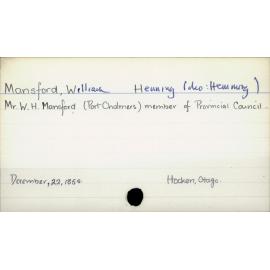 Mansford, William Henning (also: Hemming)
Mr. W. H. Mansford (Port Chalmers) member of Provincial Council
December, 22, 1854
Hocken, Otago.